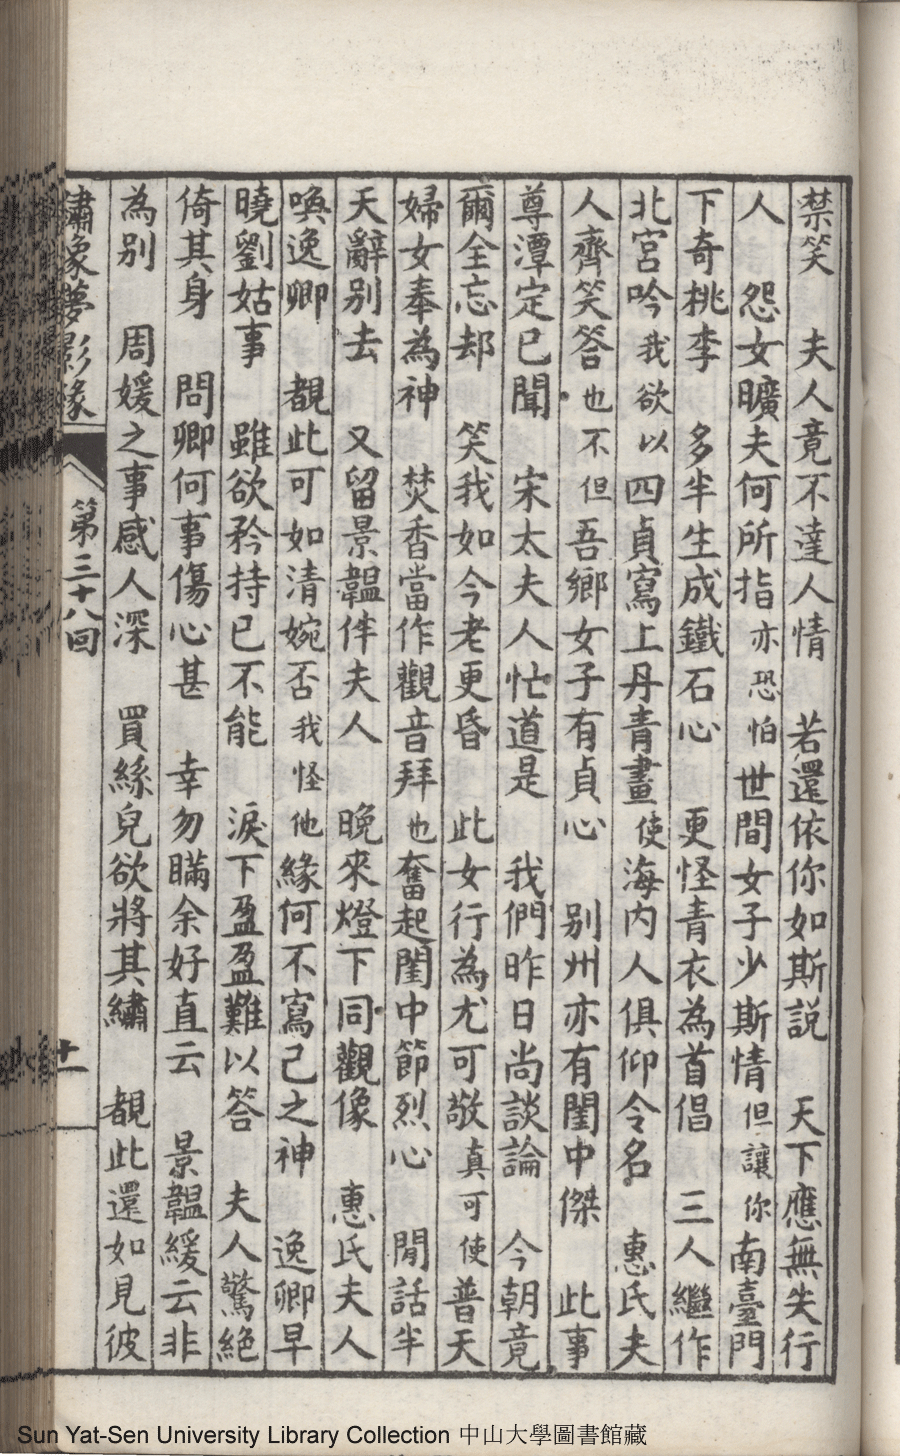 禁笑　夫人竟不達人情　若還依你如斯説　天下應無失行
人　怨女曠夫何所指亦恐怕世間女子少斯情但讓你南臺門
下奇桃李　多半生成鐵石心　更怪青衣為首倡　三人繼作
北宮吟我欲以四貞寫上丹青畫使海內人俱仰令名　惠氏夫
人齊笑答也不但吾鄉女子有貞心　別州亦有閨中傑　此事
尊潭定已聞　宋太夫人忙道是　我們昨日尚談論　今朝竟
爾全忘却　笑我如今老更昏　此女行為尤可敬真可使普天
婦女奉為神　焚香當作觀音拜也奮起閨中節烈心　閒話半
天辭別去　又留景韞伴夫人　晚來燈下同觀像　惠氏夫人
喚逸卿　覩此可如清婉否我怪他緣何不寫己之神　逸卿早
曉劉姑事　雖欲矜持已不能　淚下盈盈難以答　夫人驚絕
倚其身　問卿何事傷心甚　幸勿瞞余好直云　景韞緩云非
為別　周媛之事感人深　買絲兒欲將其繡　覩此還如見彼
繡像夢影緣　第三十八回　十一
Sun Yat-Sen University Library Collection 中山大學圖書館藏